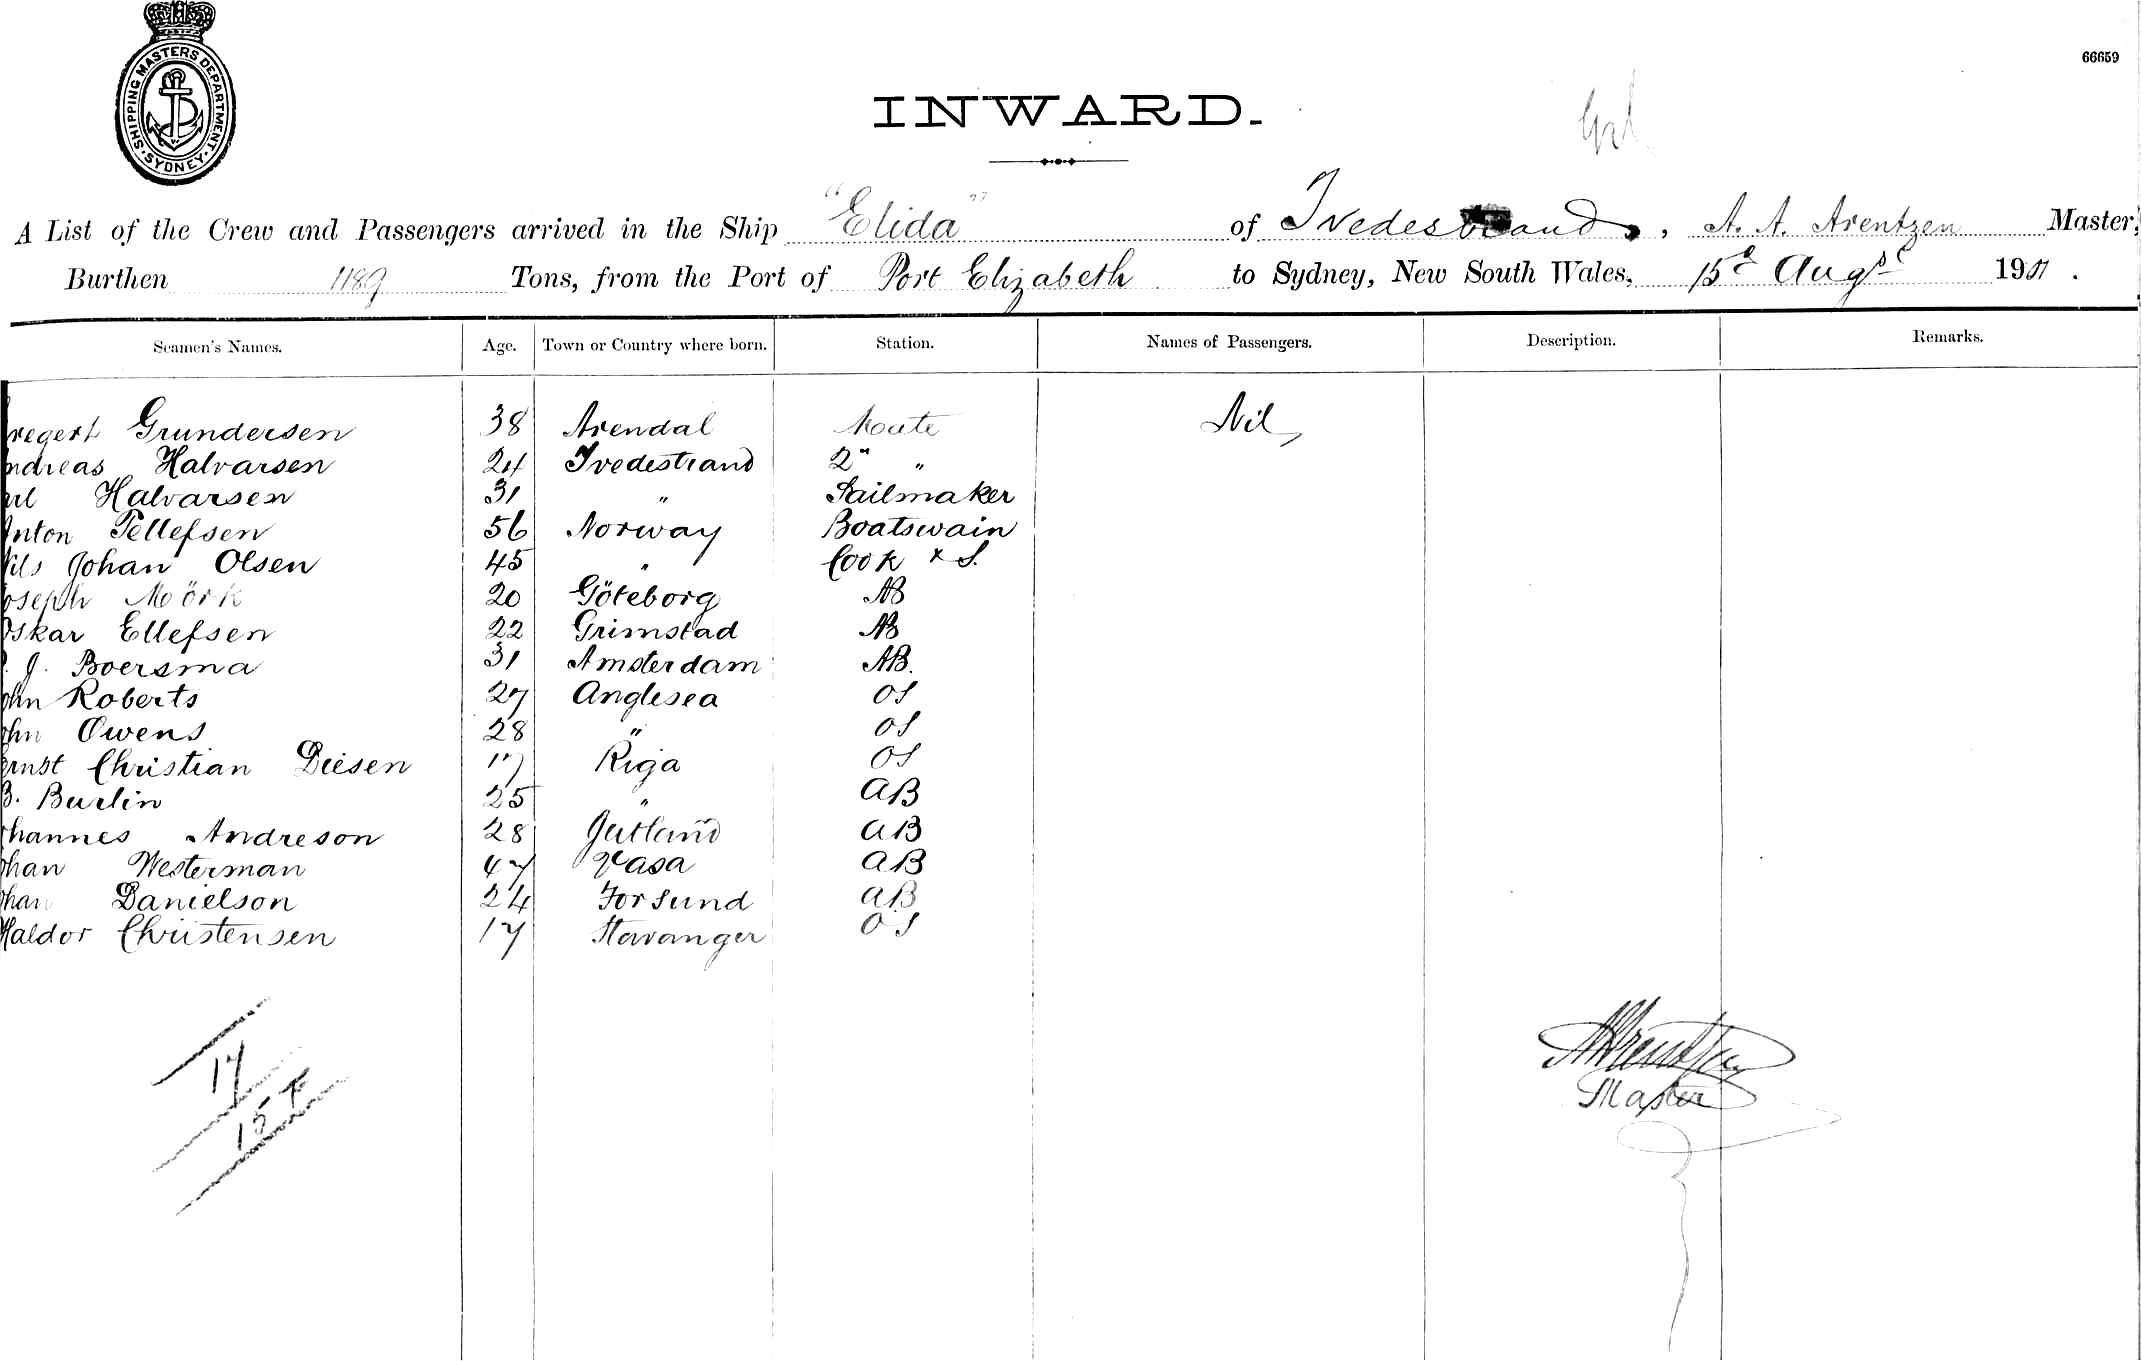 SHIPPING MASTERS DEPARTMENT. SYDNEY.
66659
INWARD.
A List of the Crew and Passengers arrived in the Ship "Elida" of Tvedestrand, A. A. Arentzen Master,
Burthen 1189 Tons, from the Port of Port Elizabeth to Sydney, New South Wales, 15th Augst 1901.
Seamen's Names. Age. Town or Country where born. Station. Names of Passengers. Description. Remarks.
regert Grundersen 38 Arendal Mate Nil
ndreas Halvarsen 24 Tvedestrand 2nd "
arl Halvarsen 31 " Sailmaker
Anton Tellefsen 56 Norway Boatswain
Nils Johan Olsen 45 " Cook & S.
oseph Mörk 20 Göteborg AB
Oskar Ellefsen 22 Grimstad AB
J. Boersma 31 Amsterdam AB.
ohn Roberts 27 Anglesea OS
ohn Owens 28 " OS
Ernst Christian Diesen 17 Riga OS
B. Burlin 25 " AB
ohannes Andreson 28 Jutland AB
ohan Westerman 47 Vasa AB
ohan Danielson 24 Forsund AB
Haldor Christensen 17 Stavanger OS
17
15 x
Master